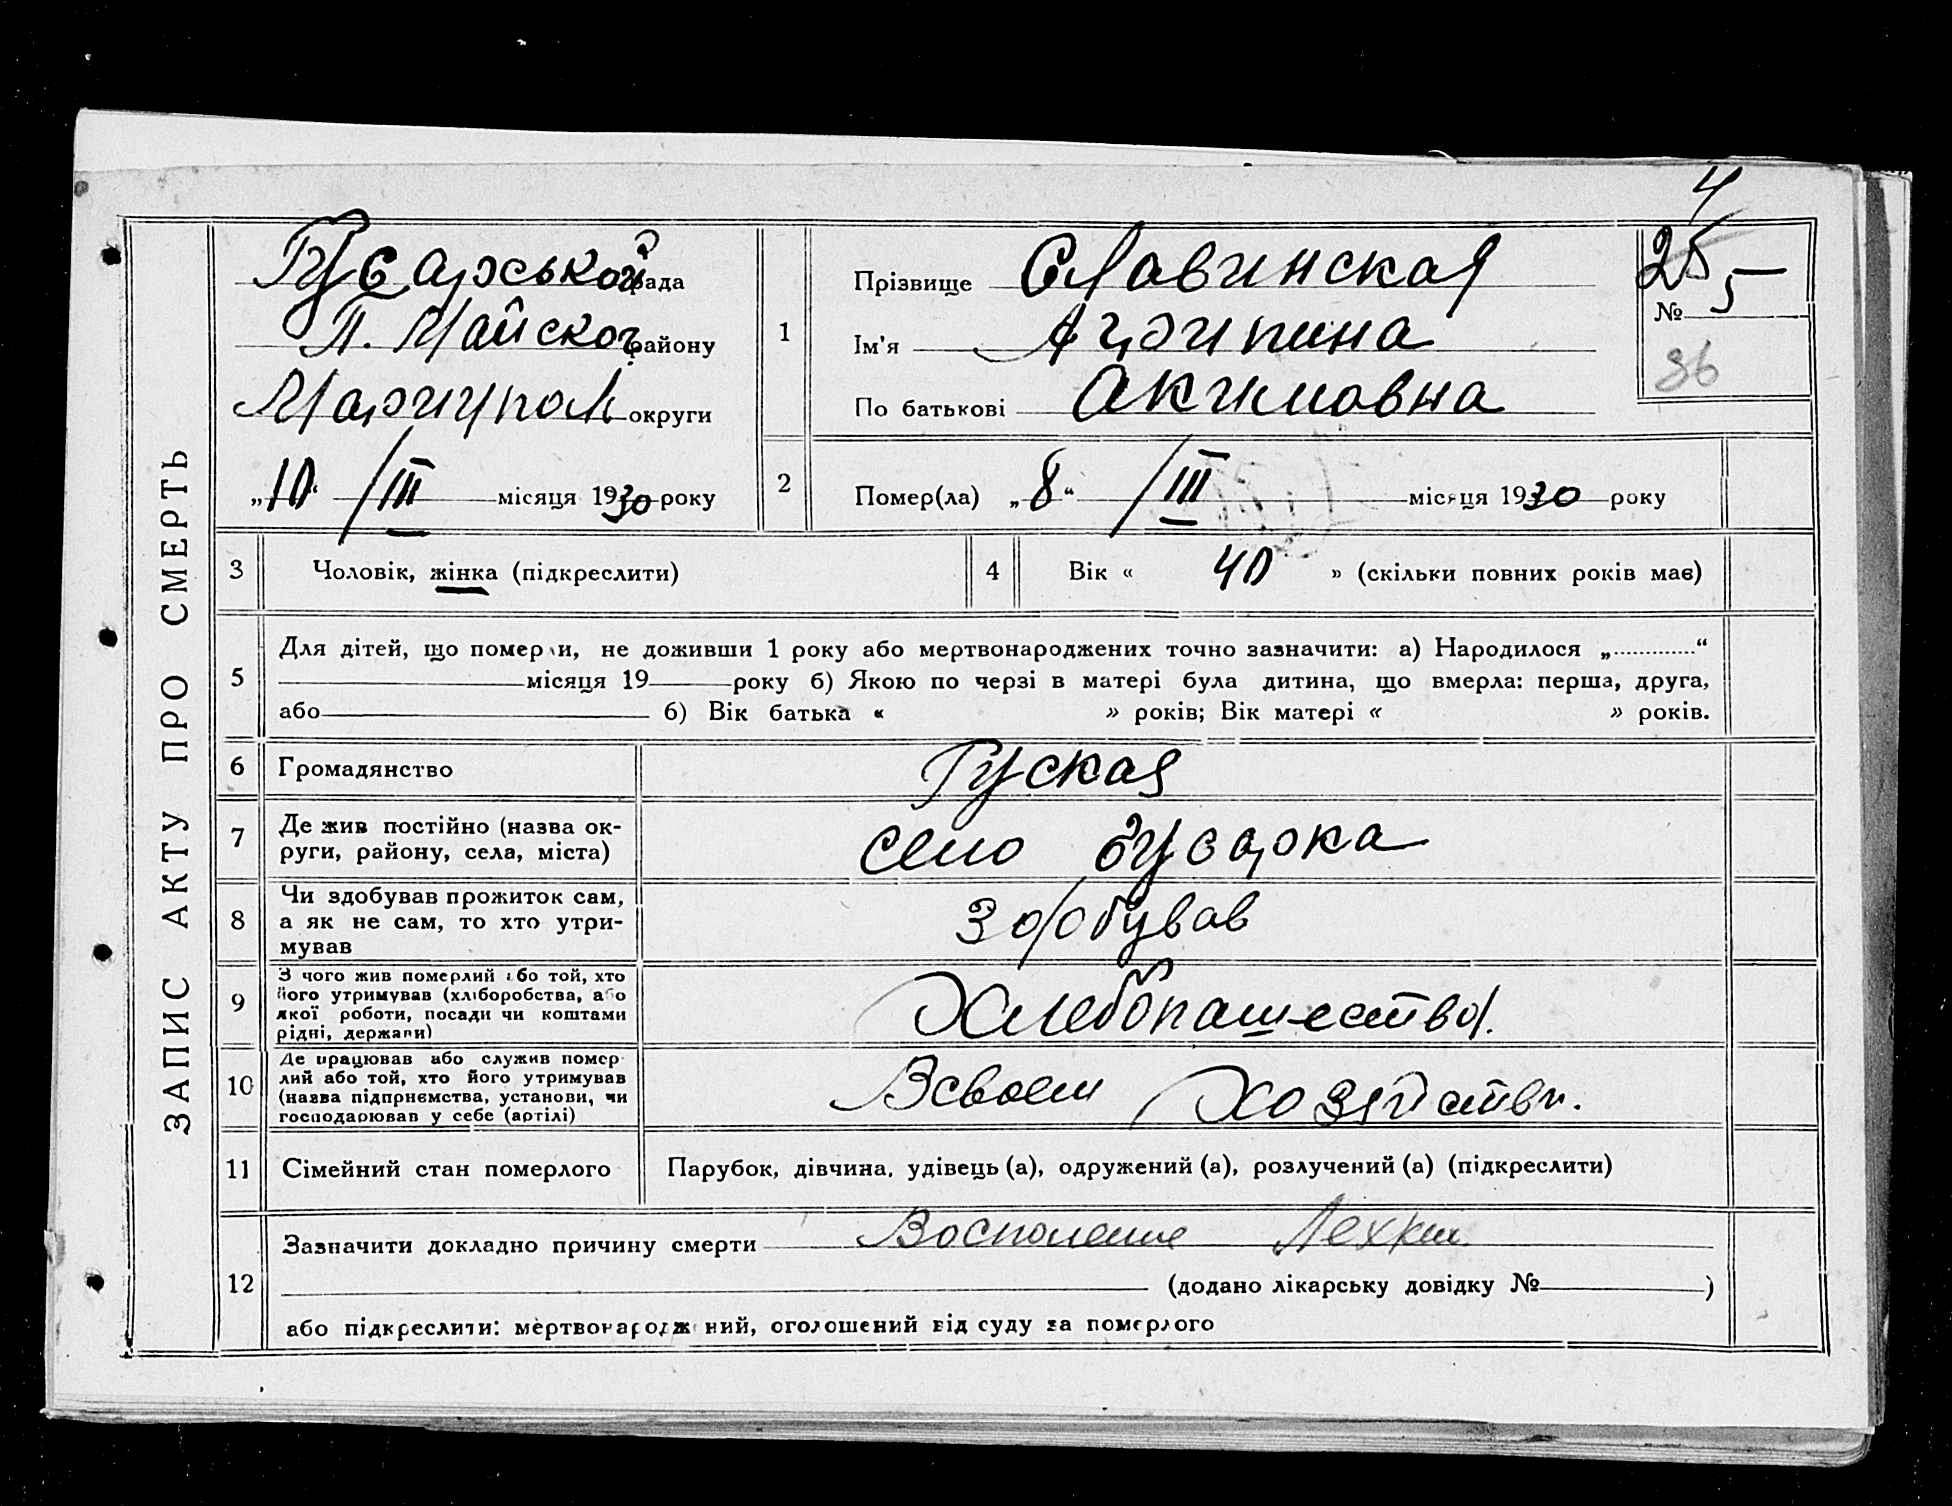 ЗАПИС АКТУ ПРО СМЕРТЬ
рада
П. Майской району
Мариупол округи
„10“ / III місяця 1930 року
1
Прізвище Славинская
Ім'я Агрипина
По батькові Акимовна
4
25
№ 5
36
2
Помер(ла) „8“ / III місяця 1930 року
3
Чоловік, жінка (підкреслити)
4
Вік « 40 » (скільки повних років має)
5
Для дітей, що померли, не доживши 1 року або мертвонароджених точно зазначити: а) Народилося „............“
місяця 19 року б) Якою по черзі в матері була дитина, що вмерла: перша, друга,
або б) Вік батька « » років; Вік матері « » років.
6
Громадянство
Руская
7
Де жив постійно (назва ок-
руги, району, села, міста)
село
8
Чи здобував прожиток сам,
а як не сам, то хто утри-
мував
Здобував
9
З чого жив померлий або той, хто
його утримував (хліборобства, або
якої роботи, посади чи коштами
рідні, держави)
Хлебопашество.
10
Де працював або служив помер-
лий або той, хто його утримував
(назва підприємства, установи, чи
господарював у себе (артілі)
Всвоем Хозяйстви.
11
Сімейний стан померлого
Парубок, дівчина, удівець (а), одружений (а), розлучений (а) (підкреслити)
12
Зазначити докладно причину смерти Восполение Лехких
(додано лікарську довідку № )
або підкреслити: мертвонароджений, оголошений від суду за померлого